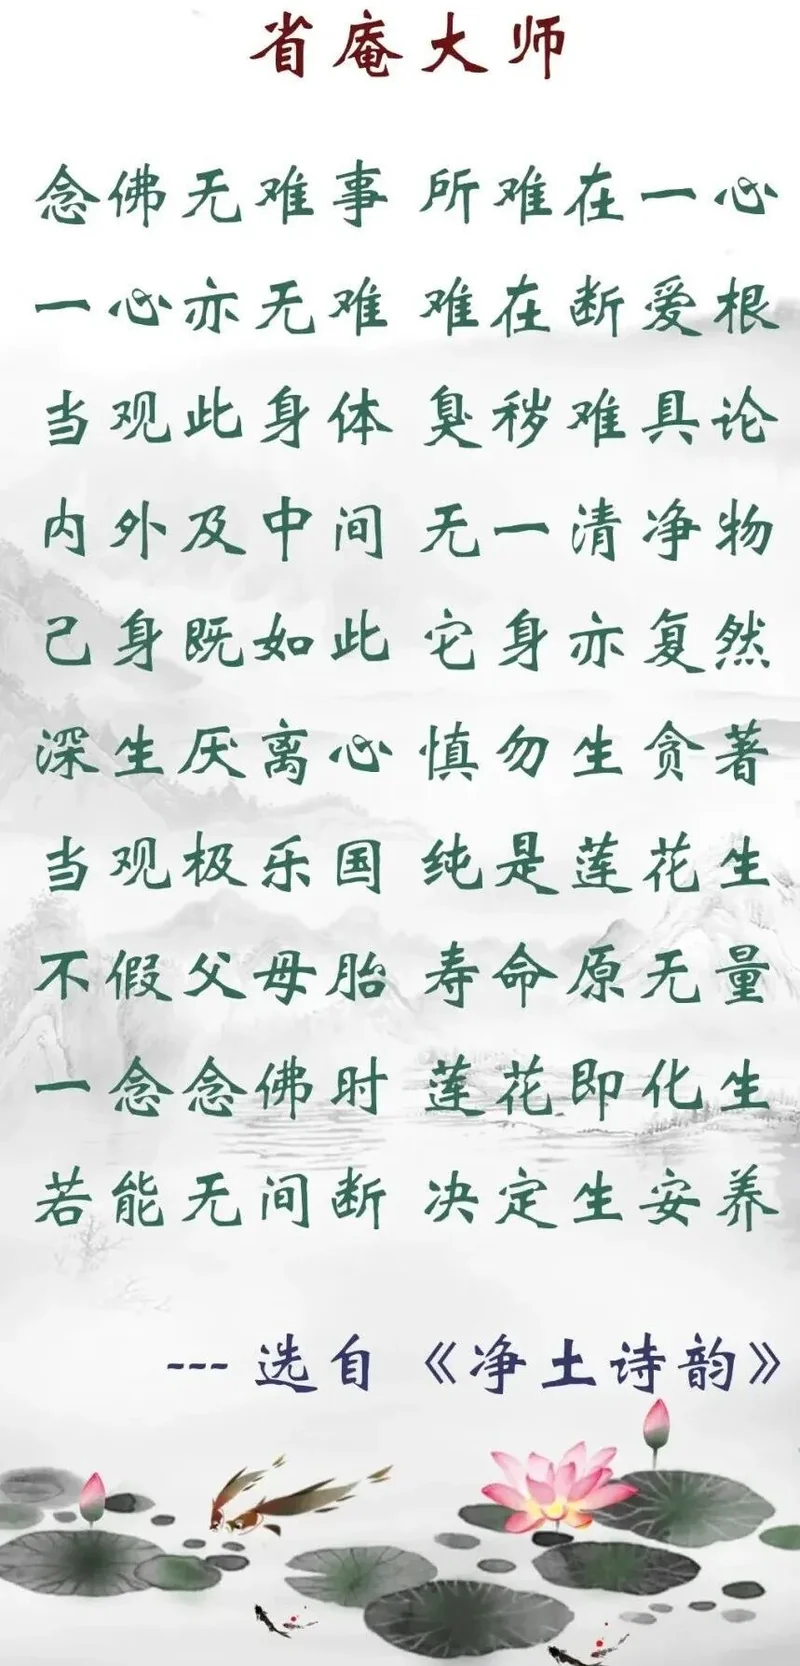 省庵大师
念佛无难事 所难在一心
一心亦无难 难在断爱根
当观此身体 臭秽难具论
内外及中间 无一清净物
己身既如此 它身亦复然
深生厌离心 慎勿生贪著
当观极乐国 纯是莲花生
不假父母胎 寿命原无量
一念念佛时 莲花即化生
若能无间断 决定生安养
--- 选自《净土诗韵》